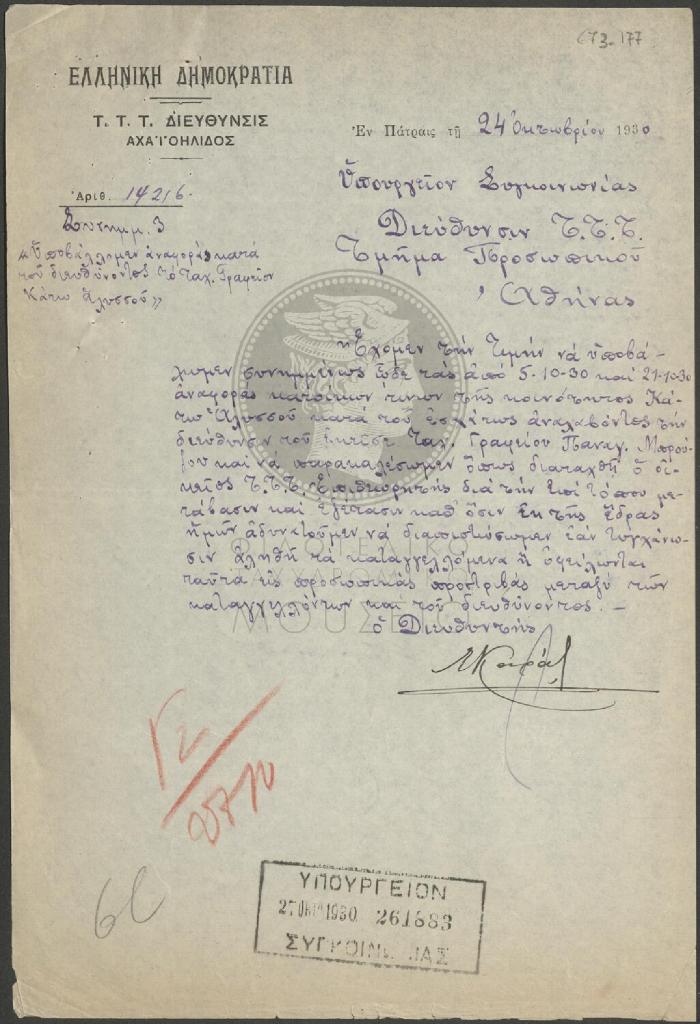 673-177
ΕΛΛΗΝΙΚΗ ΔΗΜΟΚΡΑΤΙΑ
Τ. Τ. Τ. ΔΙΕΥΘΥΝΣΙΣ
ΑΧΑΪΟΗΛΙΔΟΣ
Ἐν Πάτραις τῇ 24 Ὀκτωβρίου 1930
Ἀριθ. 14216.
Συνημμ. 3
«Ὑποβάλλομεν ἀναφορὰς κατὰ
τοῦ διευθύνοντος τὸ ταχ. Γραφεῖον
Κάτω Ἀλυσσοῦ»
Ὑπουργεῖον Συγκοινωνίας
Διεύθυνσιν Τ.Τ.Τ.
Τμῆμα Προσωπικοῦ
Ἀθήνας
Ἔχομεν τὴν τιμὴν νὰ ὑποβά-
λωμεν συνημμένως ὧδε τὰς ἀπὸ 5-10-30 καὶ 21-10-30
ἀναφορὰς κατοίκων τινων τῆς κοινότητος Κά-
τω Ἀλυσσοῦ κατὰ τοῦ ἐσχάτως ἀναλαβόντος τὴν
διεύθυνσιν τοῦ ἐκεῖσε Ταχ. Γραφείου Παναγ.
καὶ νὰ παρακαλέσωμεν ὅπως διαταχθῇ ὁ οἰ-
κεῖος Τ.Τ.Τ. Ἐπιθεωρητὴς διὰ τὴν ἐπὶ τόπου με-
τάβασιν καὶ ἐξέτασιν καθ' ὅσον ἐκ τῆς ἕδρας
ἡμῶν ἀδυνατοῦμεν νὰ διαπιστώσωμεν ἐὰν τυγχάνω-
σιν ἀληθῆ τὰ καταγγελλόμενα ἢ ὀφείλωνται
ταῦτα εἰς προσωπικὰς προστριβὰς μεταξὺ τῶν
καταγγελλόντων καὶ τοῦ διευθύνοντος. –
ὁ Διευθυντής
ΜΟΥΣΕΙΟ
ΥΠΟΥΡΓΕΙΟΝ
27 ΟΚΤ 1930 261883
ΣΥΓΚΟΙΝΩΝΙΑΣ